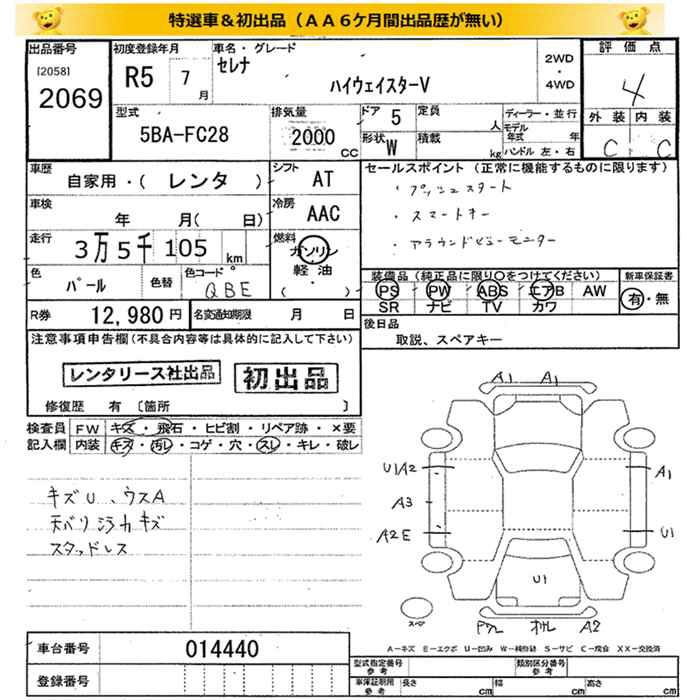 特選車＆初出品（ＡＡ６ケ月間出品歴が無い）
出品番号
[2058]
2069
初度登録年月
R5 7月
車名・グレード
セレナ
ハイウェイスターV
2WD
・
4WD
評価点
4
外装 内装
C C
型式
5BA-FC28
排気量
2000 CC
ドア 5
定員 人
形状 W
積載 kg
ディーラー・並行
モデル年式 年
ハンドル 左・右
車歴
自家用・( レンタ )
シフト
AT
車検
年 月( 日)
冷房
AAC
走行
3万5千105 km
燃料
ガソリン
軽油
( )
色
パール
色替
色コード
QBE
R券 12,980円
名変通知期限 月 日
セールスポイント（正常に機能するものに限ります）
・プッシュスタート
・スマートキー
・アラウンドビューモニター
装備品（純正品に限り○をつけてください）
PS PW ABS エアB AW
SR ナビ TV カワ
新車保証書
有・無
後日品
取説、スペアキー
注意事項申告欄(不具合内容等は具体的に記入して下さい)
レンタリース社出品
初出品
修復歴 有〔箇所 〕
検査員記入欄
FW キズ・飛石・ヒビ割・リペア跡・×要
内装 キズ・汚レ・コゲ・穴・スレ・キレ・破レ
キズU、ウスA
天バリシラカキズ
スタッドレス
A1 A1
U1A2
A1
A3
A2E
U1
U1
スペア
A2
A－キズ E－エクボ U－凹み W－補修跡 S－サビ C－腐食 XX－交換済
車台番号 014440
登録番号
型式指定番号
参考
類別区分番号
参考
車庫証明用
参考
長さ cm
幅 cm
高さ cm